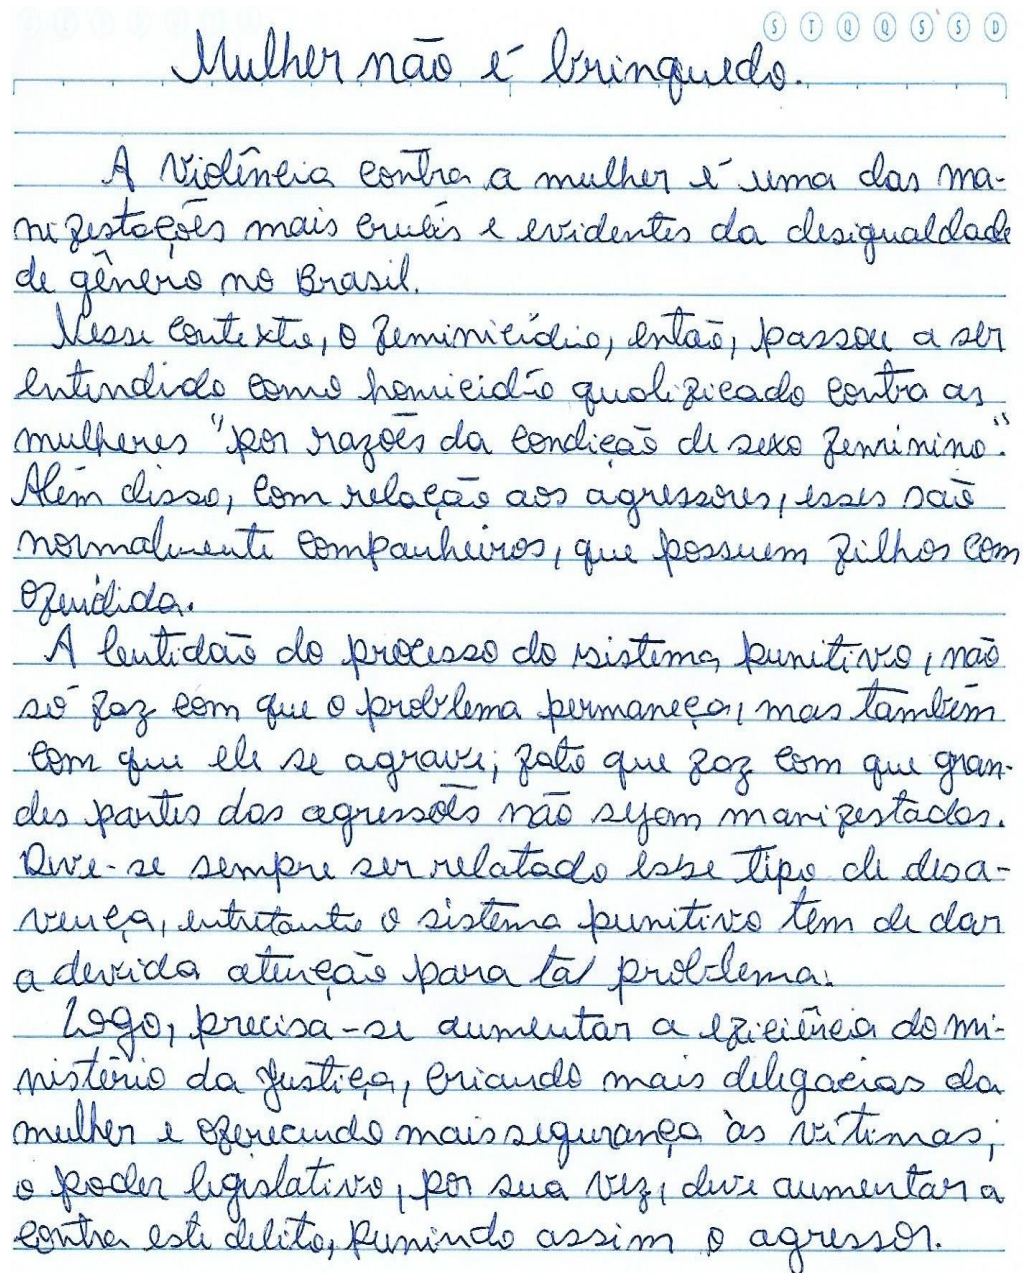 S T Q Q S S D
Mulher não é brinquedo.
A violência contra a mulher é uma das ma-
nifestações mais cruéis e evidentes da desigualdade
de gênero no Brasil.
Nesse contexto, o feminicídio, então, passou a ser
entendido como homicídio qualificado contra as
mulheres "por razões da condição de sexo feminino".
Além disso, com relação aos agressores, esses são
normalmente companheiros, que possuem filhos com
ofendida.
A lentidão do processo do sistema punitivo, não
só faz com que o problema permaneça, mas também
com que ele se agrave; fato que faz com que gran-
des partes das agressões não sejam manifestadas.
Deve-se sempre ser relatado esse tipo de desa-
vença, entretanto o sistema punitivo tem de dar
a devida atenção para tal problema.
Logo, precisa-se aumentar a eficiência do mi-
nistério da Justiça, criando mais delegacias da
mulher e oferecendo mais segurança às vítimas;
o poder legislativo, por sua vez, deve aumentar a
contra este delito, punindo assim o agressor.